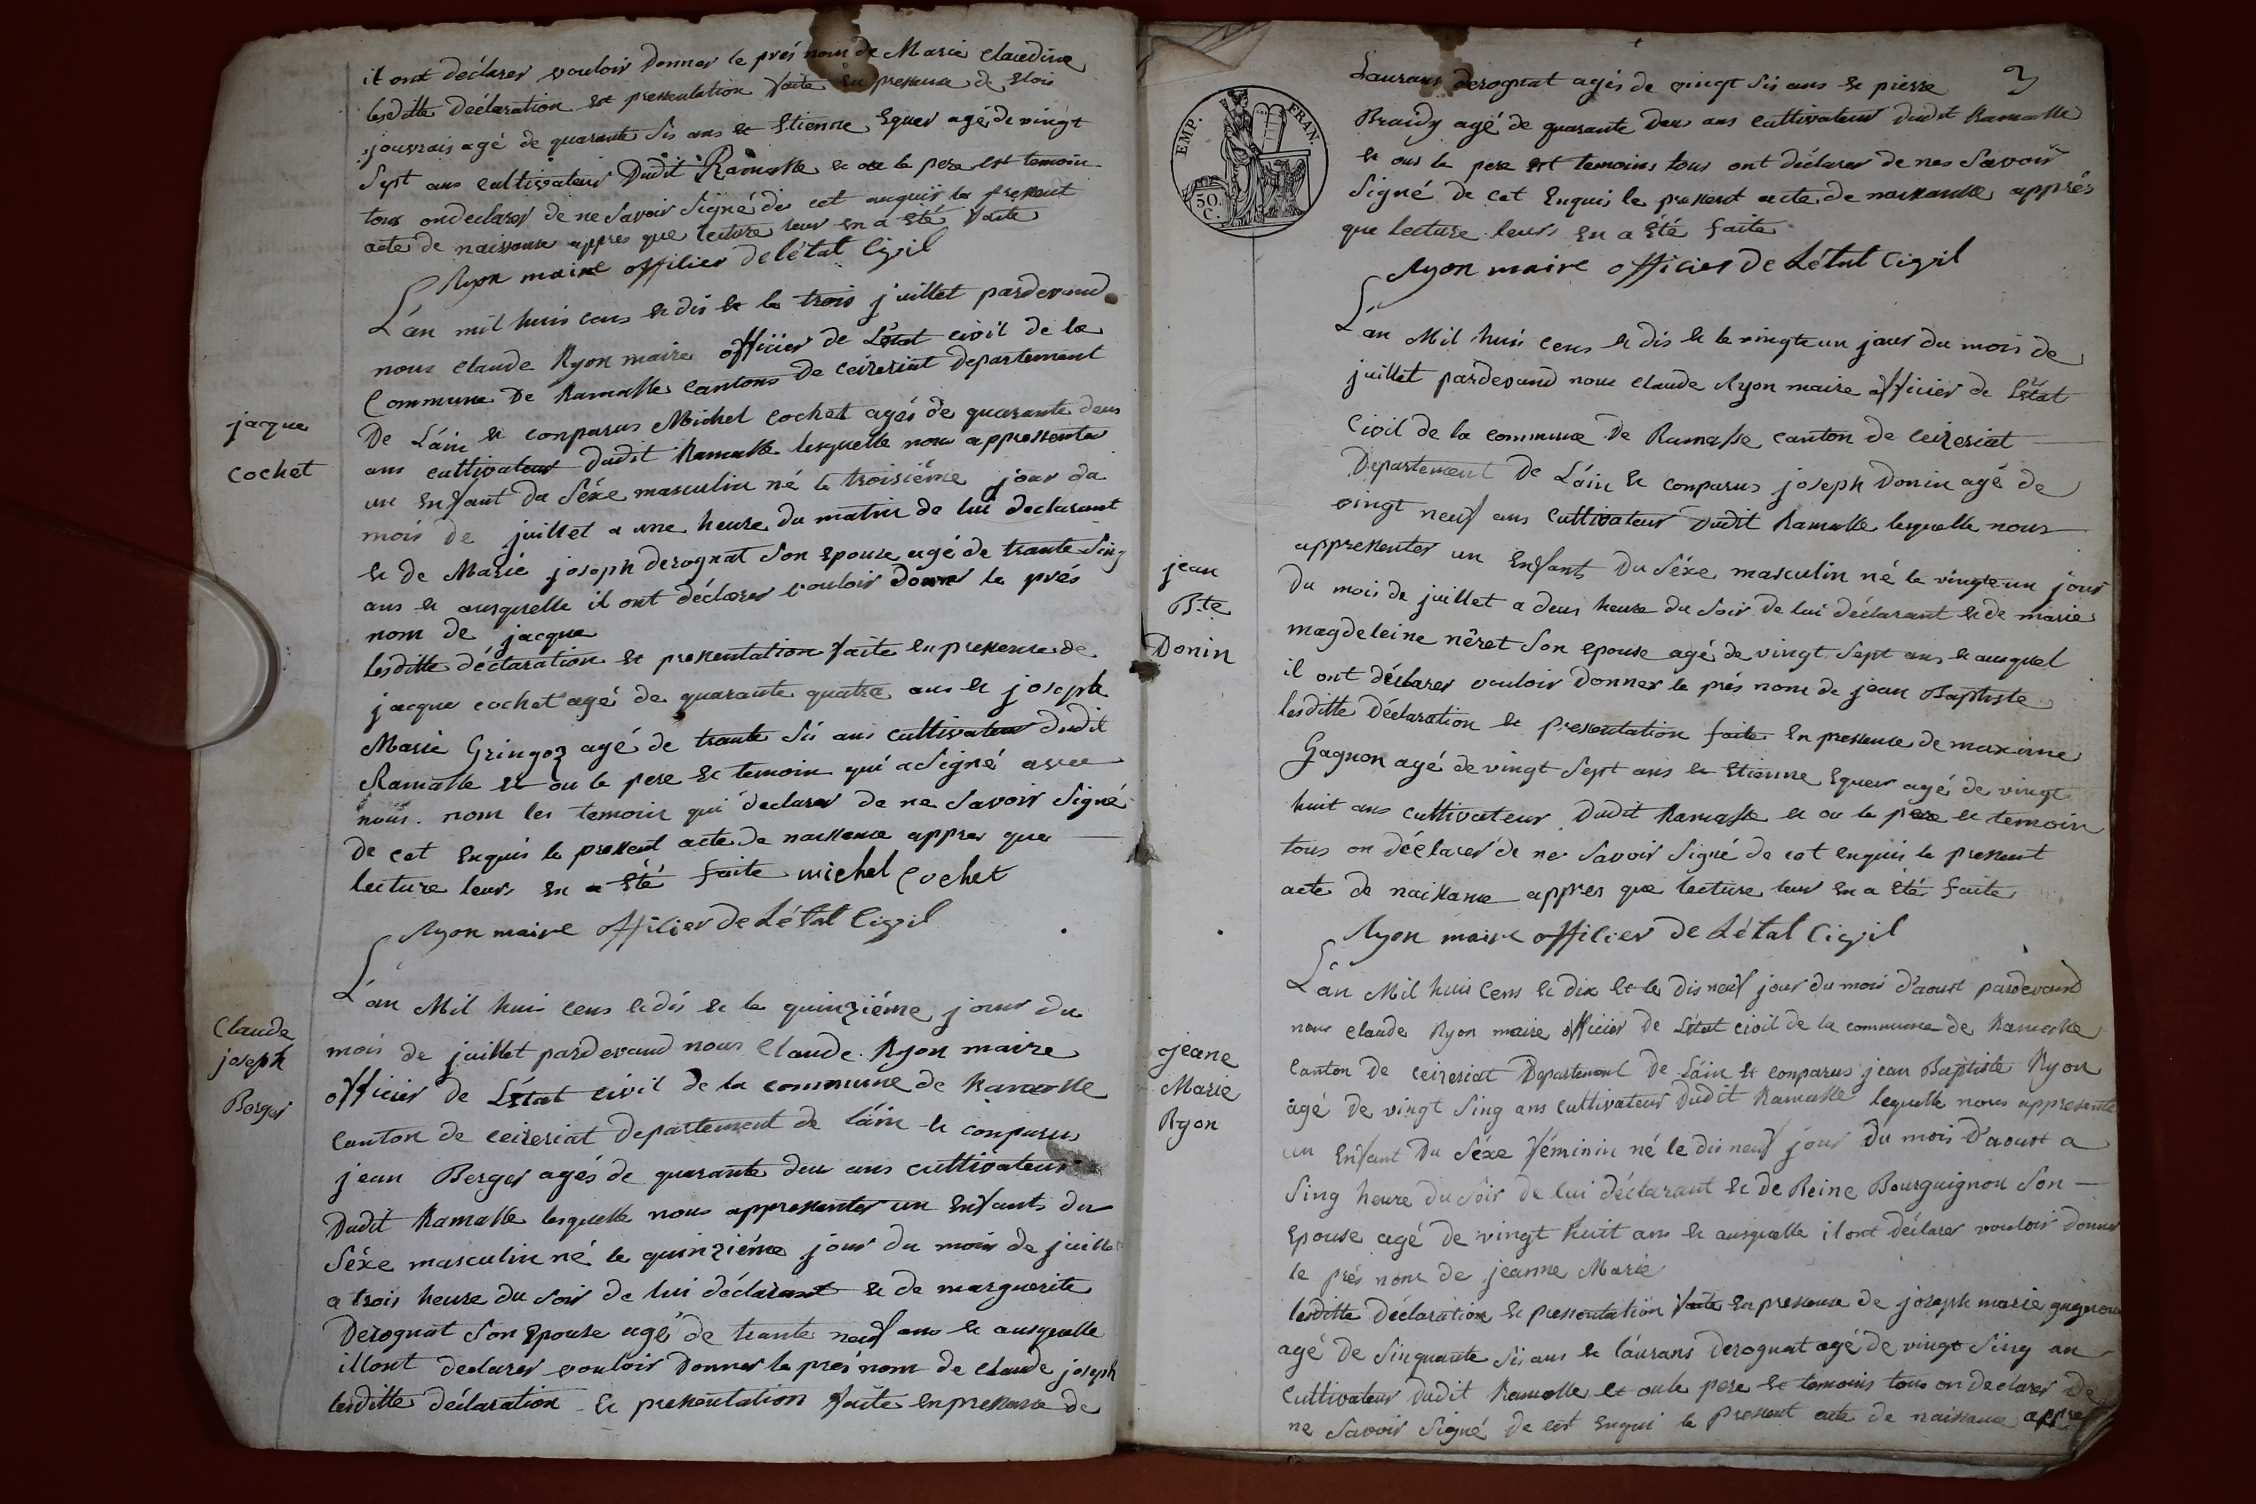 il ont déclarer vouloir donner le pres nom de Marie Claudine
lesditte déclaration et pressentation faite en pressence de Elois
jouvrais agé de quarante sis ans et Etienne Equer agé de vingt
sept ans cultivateur dudit Ramasse et ou le pere est temoin
tous on declarer de ne savoir signé de cet enquis le pressent
acte de naissance appres que lecture leur en a été faite
Ryon maire officier de l'état Civil
L'an mil huis cens et dis et le trois juillet pardevand
nous Claude Ryon maire officier de L'état civil de la
Commune de Ramasse Cantons de Ceizeriat departement
De L'áin et conparus Michel cochet agés de quarante deus
ans cultivateur dudit Ramasse lesquelle nous appressenter
un Enfant du Séxe masculin né le troisiéme jour du
mois de juillet a une heure du matin de lui declarant
et de Marie joseph derognat son Epouse agé de trante sinq
ans et ausquelle il ont déclarer vouloir donner le prés
nom de jacque
lesditte déclaration et pressentation faite en pressence de
jacque cochet agé de quarante quatre ans et joseph
Marie Gringoz agé de trante sis ans cultivateur dudit
Ramasse et ou le pere et temoin qui a signé avec
nous. nom les temoin qui declarer de ne savoir signé
de cet enquis le pressent acte de naissence appres que
lecture leurs en a été faite michel Cochet
Ryon maire officier de L'état Civil
L'an Mil huis cens et dis et le quinziéme jour du
mois de juillet pardevand nous Claude Ryon maire
officier de L'état civil de la commune de Ramasse
Canton de ceizeriat departement de l'áin et conparus
jean Berger agés de quarante deu ans cultivateur
dudit Ramasse lesquelle nous appressenter un Enfants du
Séxe masculin né le quinziéme jour du mois de juillet
a trois heure du soir de lui déclarant et de marguerite
Derognat son Epouse agé de trante neuf ans et ausquelle
il ont declarer vouloir donner le pres nom de Claude joseph
lesditte déclaration et pressentation faite en pressence de
jacque
cochet
Claude
joseph
Berger
3
Laurans derognat agés de vingt sis ans et pierre
Braidy agé de quarante deu ans cultivateur dudit Ramasse
et ou le pere est temoins tous ont déclarer de nes savoir
signé de cet Enquis le pressent acte de naissance apprés
que lecture leurs en a été faite
EMP. FRAN.
50. C.
Ryon maire officier de L'état Civil
L'an Mil huis cens et dis et le vingte un jour du mois de
juillet pardevand nous Claude Ryon maire officier de L'état
Civil de la commune de Ramasse canton de ceizeriat
Departement de L'áin et conparus joseph Donin agé de
vingt neuf ans cultivateur dudit Ramasse lesquelle nous
appressenter un Enfants du Séxe masculin né le vingte un jour
du mois de juillet a deus heure du soir de lui déclarant et de marie
magdeleine nêret son epouse agé de vingt sept ans et ausquel
il ont déclarer vouloir donner le prés nom de jean Baptiste
lesditte déclaration et pressentation faite en pressence de maxime
Gagnon agé de vingt sept ans et Etienne Equer agé de vingt
huit ans cultivateur dudit Ramasse et ou le pere et temoin
tous on déclarer de ne savoir signé de cet enquis le pressent
acte de naissance appres que lecture leur en a été faite
Ryon maire officier de L'état Civil
jean
B.te
Donin
L'an Mil huis cens et dix et le dis neuf jour du mois d'aoust pardevand
nous claude Ryon maire officier de L'état civil de la commune de Ramasse
Canton de ceizeriat Departement de L'áin et conparus jean Baptiste Ryon
agé de vingt sinq ans cultivateur dudit Ramasse lequelle nous appresente
un Enfant du Séxe féminin né le dis neuf jour du mois d'aoust a
sinq heure du soir de lui déclarant et de Reine Bourguignon son
Epouse agé de vingt huit ans et ausquelle il ont déclarer vouloir donner
le prés nom de jeanne Marie
lesditte déclaration et pressentation faite en pressence de joseph marie gagnon
agé de sinquante sis ans et l'áurans derognat agé de vingt sinq an
cultivateur dudit Ramasse et ou le pere et temoins tous on declarer de
ne savoir signé de cet Enqui le pressent acte de naissance appres
jeane
Marie
Ryon